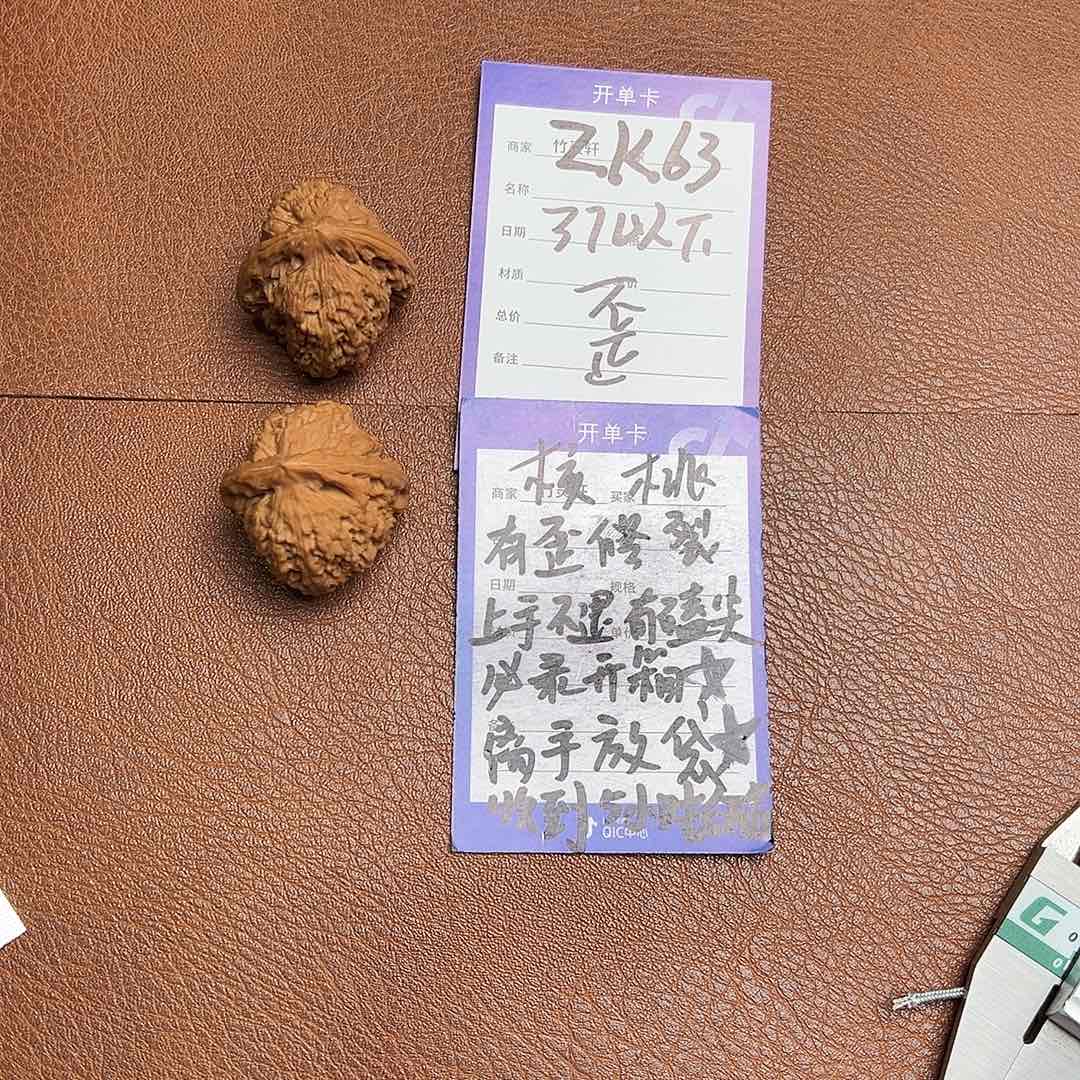 开单卡
商家 竹 轩 ZK63
名称
日期 37以下
材质
总价 歪
备注
开单卡
核桃
商家 买家
有歪修裂
日期 规格
上手不退有磕尖
必录开箱
离手放袋
收到 小时
QIC中心
G